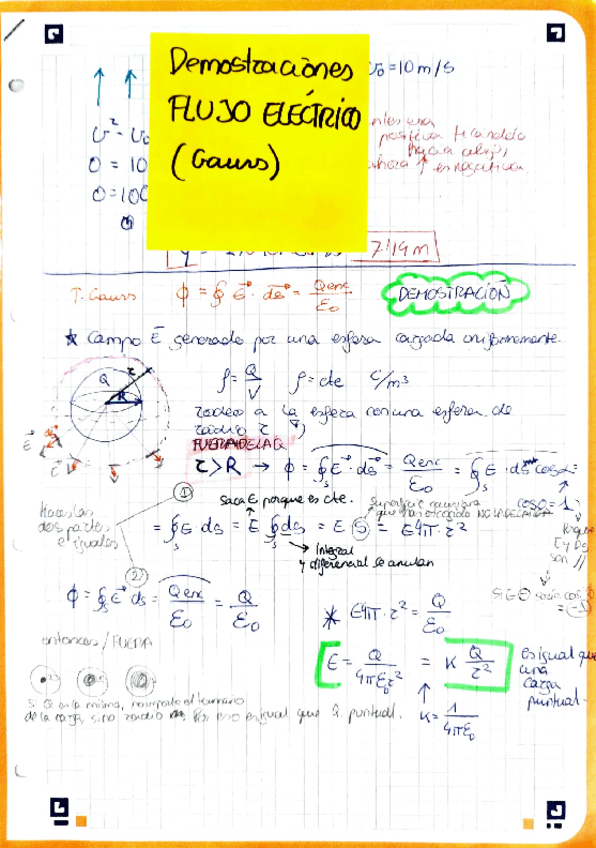 Demostraciones
FLUJO ELÉCTRICO
(Gauss)
v₀ = 10 m/s
v² - v₀
0 = 10
0 = 100
positiva tirandolo
hacia abajo,
ahora ↑ es negativa.
7'19 m
T. Gauss Φ = ∮ E⃗ · ds⃗ = Qenc/ε₀ DEMOSTRACIÓN
★ Campo E⃗ generado por una esfera cargada uniformemente.
Q r R
ρ = Q/V ρ = cte C/m³
rodeo a la esfera con una esfera de
radio r
FUERA DE LA Q
r > R → Φ = ∮s E⃗ · ds⃗ = Qenc/ε₀ = ∮s E · ds cos α =
cos 0 = 1
①
saca E porque es cte.
Superficie gaussiana
que has escogido NO LA DE CARGA
Haces las
dos partes
e igualas
= ∮s E · ds = E ∮s ds = E S = E 4π · r²
Integral
y diferencial se anulan
E y ds
son //
②
Φ = ∮s E⃗ ds = Qenc/ε₀ = Q/ε₀
* E 4π · r² = Q/ε₀
entonces / FUERA
E = Q/4πε₀r² = K Q/r²
es igual que
una
carga
puntual
K = 1/4πε₀
si Q es la misma, no importa el tamaño
de la carga, sino radio Por eso es igual que Q. puntual.